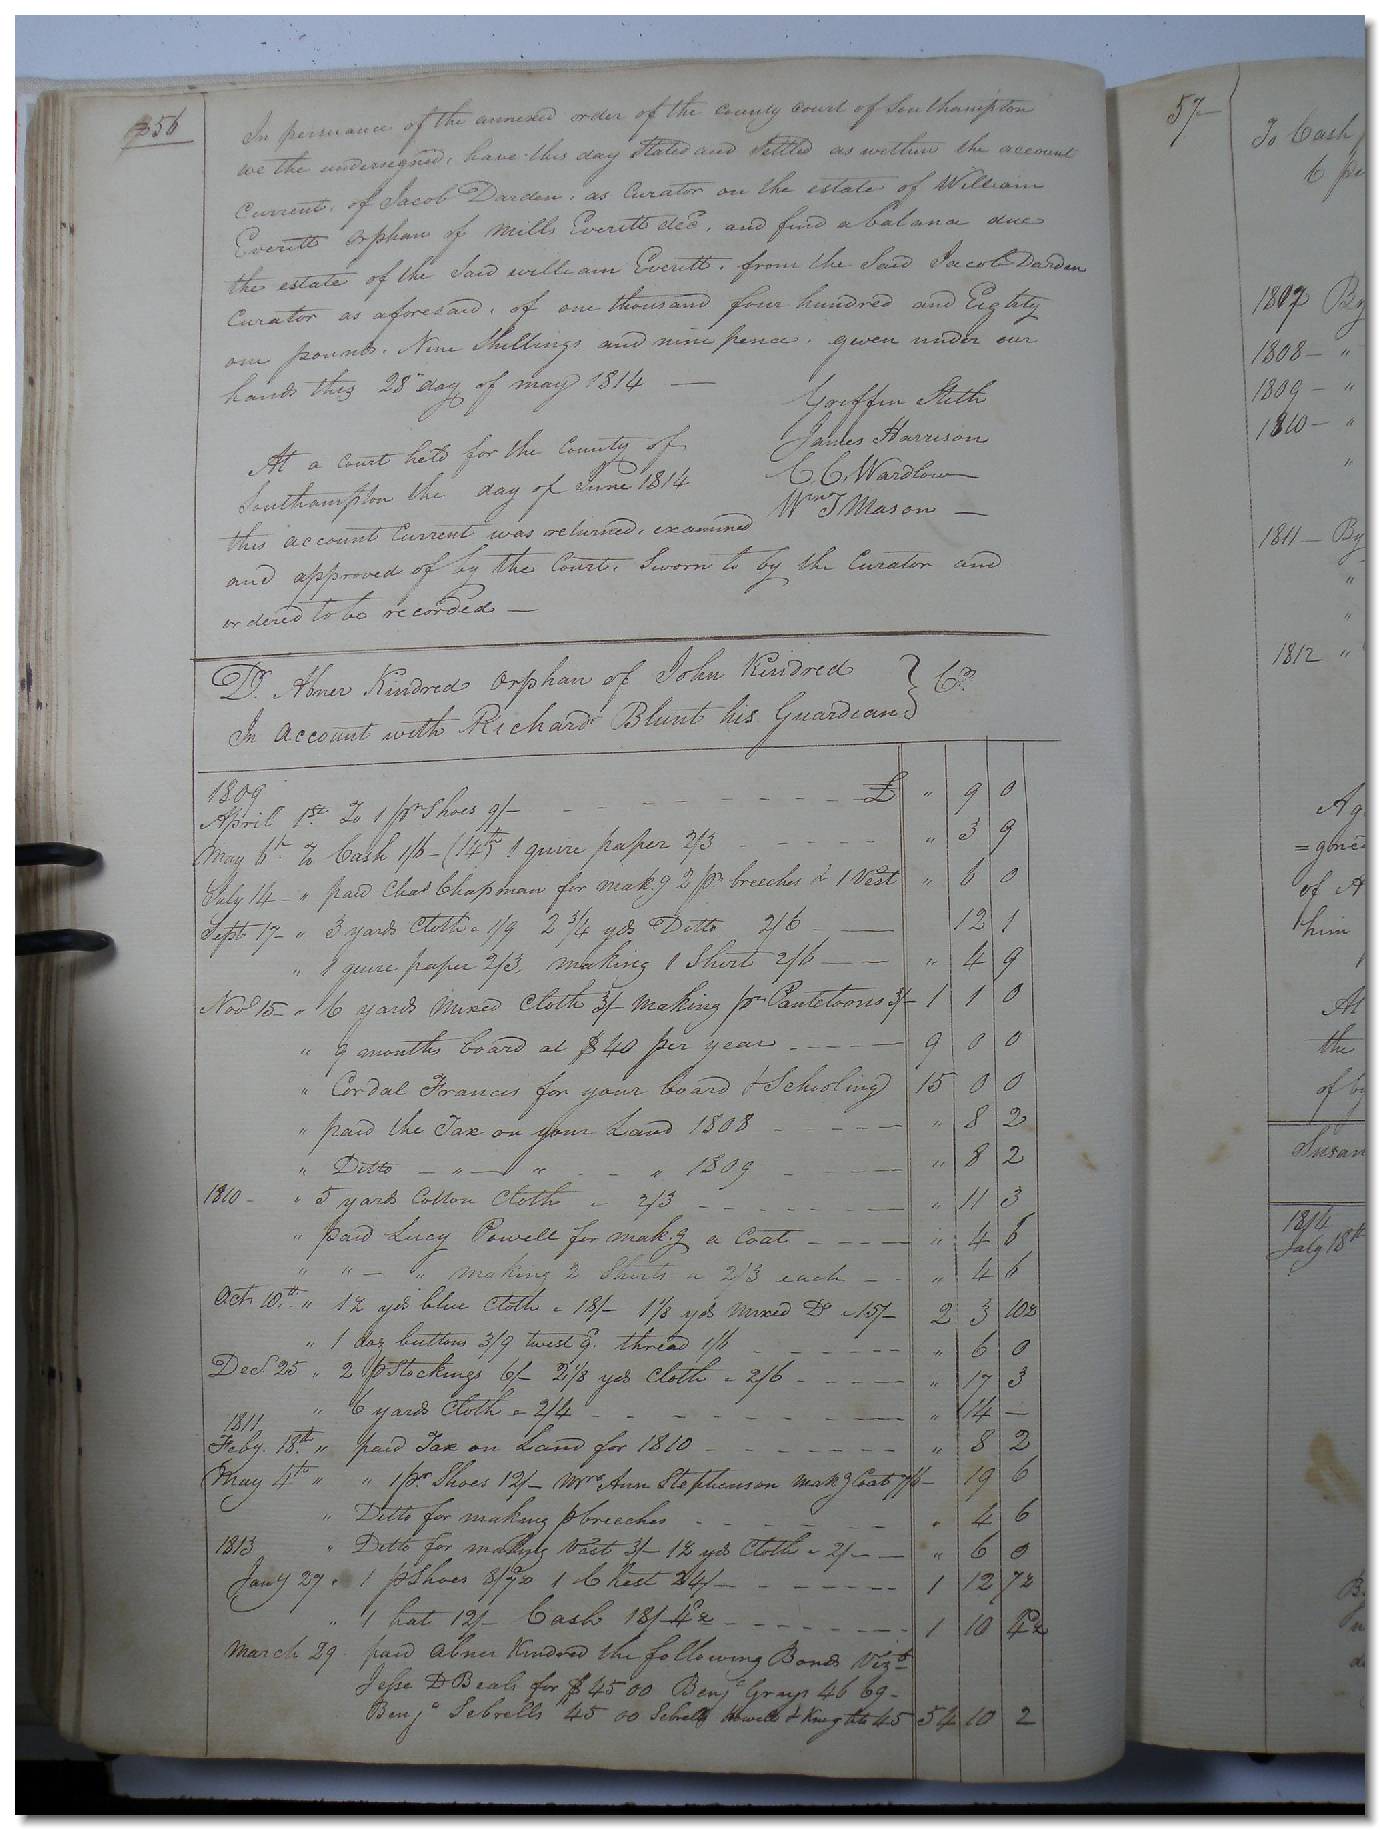 356
In persuance of the annexed order of the county court of Southampton
we the undersigned, have this day Stated and Settled as within the account
Current, of Jacob Darden, as Curator on the estate of William
Everitt orphan of Mills Everitt decd. and find a balance due
the estate of the Said william Everitt, from the Said Jacob Darden
Curator as aforesaid, of one thousand four hundred and Eighty
one pounds. Nine Shillings and nine pence. given under our
hands this 28th day of may 1814 —
Griffin Stith
James Harrison
C C Wardlow
Wm J Mason —
At a court held for the County of
Southampton the day of June 1814
this account Current was returned, examined
and approved of by the Court. Sworn to by the Curator and
ordered to be recorded —
Dr. Abner Kindred orphan of John Kindred
In account with Richard Blunt his Guardian } Cr.
1809
April 1st. To 1 pr Shoes 9/- £ " 9 0
May 6th To Cash 1/6 - (14th) 1 quire paper 2/3 " 3 9
July 14 - " paid Chas Chapman for makg 2 pr breeches & 1 Vest " 6 0
Sept 17 - " 3 yards Cloth a 1/9 2 3/4 yds Ditto 2/6 12 1
" 1 quire paper 2/3, making 1 Shirt 2/6 " 4 9
Novr 15 - " 6 yards Mixed Cloth 3/- making pr Pantetoons 3/- 1 1 0
" 9 months board at $40 per year 9 0 0
" Cordal Francis for your board & Schooling 15 0 0
" paid the Tax on your Land 1808 " 8 2
" Ditto - " - " " 1809 " 8 2
1810 - " 5 yards Cotton Cloth a 2/3 " 11 3
" paid Lucy Powell for makg a Coat " 4 6
" " - " making 2 Shirts a 2/3 each " 4 6
Octr 10th " 1½ yds blue Cloth a 18/- 1 1/8 yds mixed Do a 15/- 2 3 10½
" 1 doz buttons 3/9 twist 9. thread 1/6 " 6 0
Decr 25 " 2 p Stockings 6/- 2 1/8 yds Cloth a 2/6 " 17 3
" 6 yards Cloth a 2/4 " 14 —
1811
Feby. 18th " paid Tax on Land for 1810 " 8 2
May 4th " " 1 pr. Shoes 12/- Mrs Ann Stephenson makg Coat 7/6 - 19 6
" Ditto for making p breeches " 4 6
1813 " Ditto for making Vest 3/- 1½ yds Cloth a 2/- " 6 0
Jany 29 " 1 p Shoes 8/7½ 1 Chest 24/- 1 12 7½
" 1 hat 12/- Cash 18/4½ 1 10 4½
March 29 paid Abner Kindred the following Bonds Vizt
Jesse D Beals for $45 00 Benja Grays 46 69 -
Benja Sebrells 45 00 Sebrell Howell & Knights 45 54 10 2
57
To Cash
6
1807 By
1808 - "
1809 - "
1810 - "
"
1811 - By
"
"
1812 "
of A
him
At
the
of by
Susan
1814
July 18th